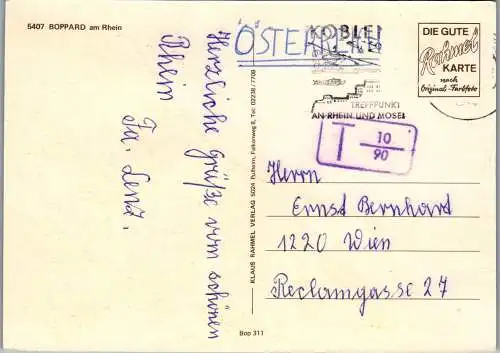 5407 BOPPARD am Rhein
Herzliche Grüße vom schönen
Rhein
Fa. Lenz.
KLAUS RAHMEL VERLAG 5024 Pulheim, Falkenweg 8, Tel: 02238/1709
Bop 311
ÖSTERREICH
KOBLE
TREFFPUNKT
AN RHEIN UND MOSEL
DIE GUTE
Rahmel
KARTE
nach
Original-Farbfoto
T 10
90
Herrn
Ernst Bernhard
1220 Wien
Reclamgasse 27